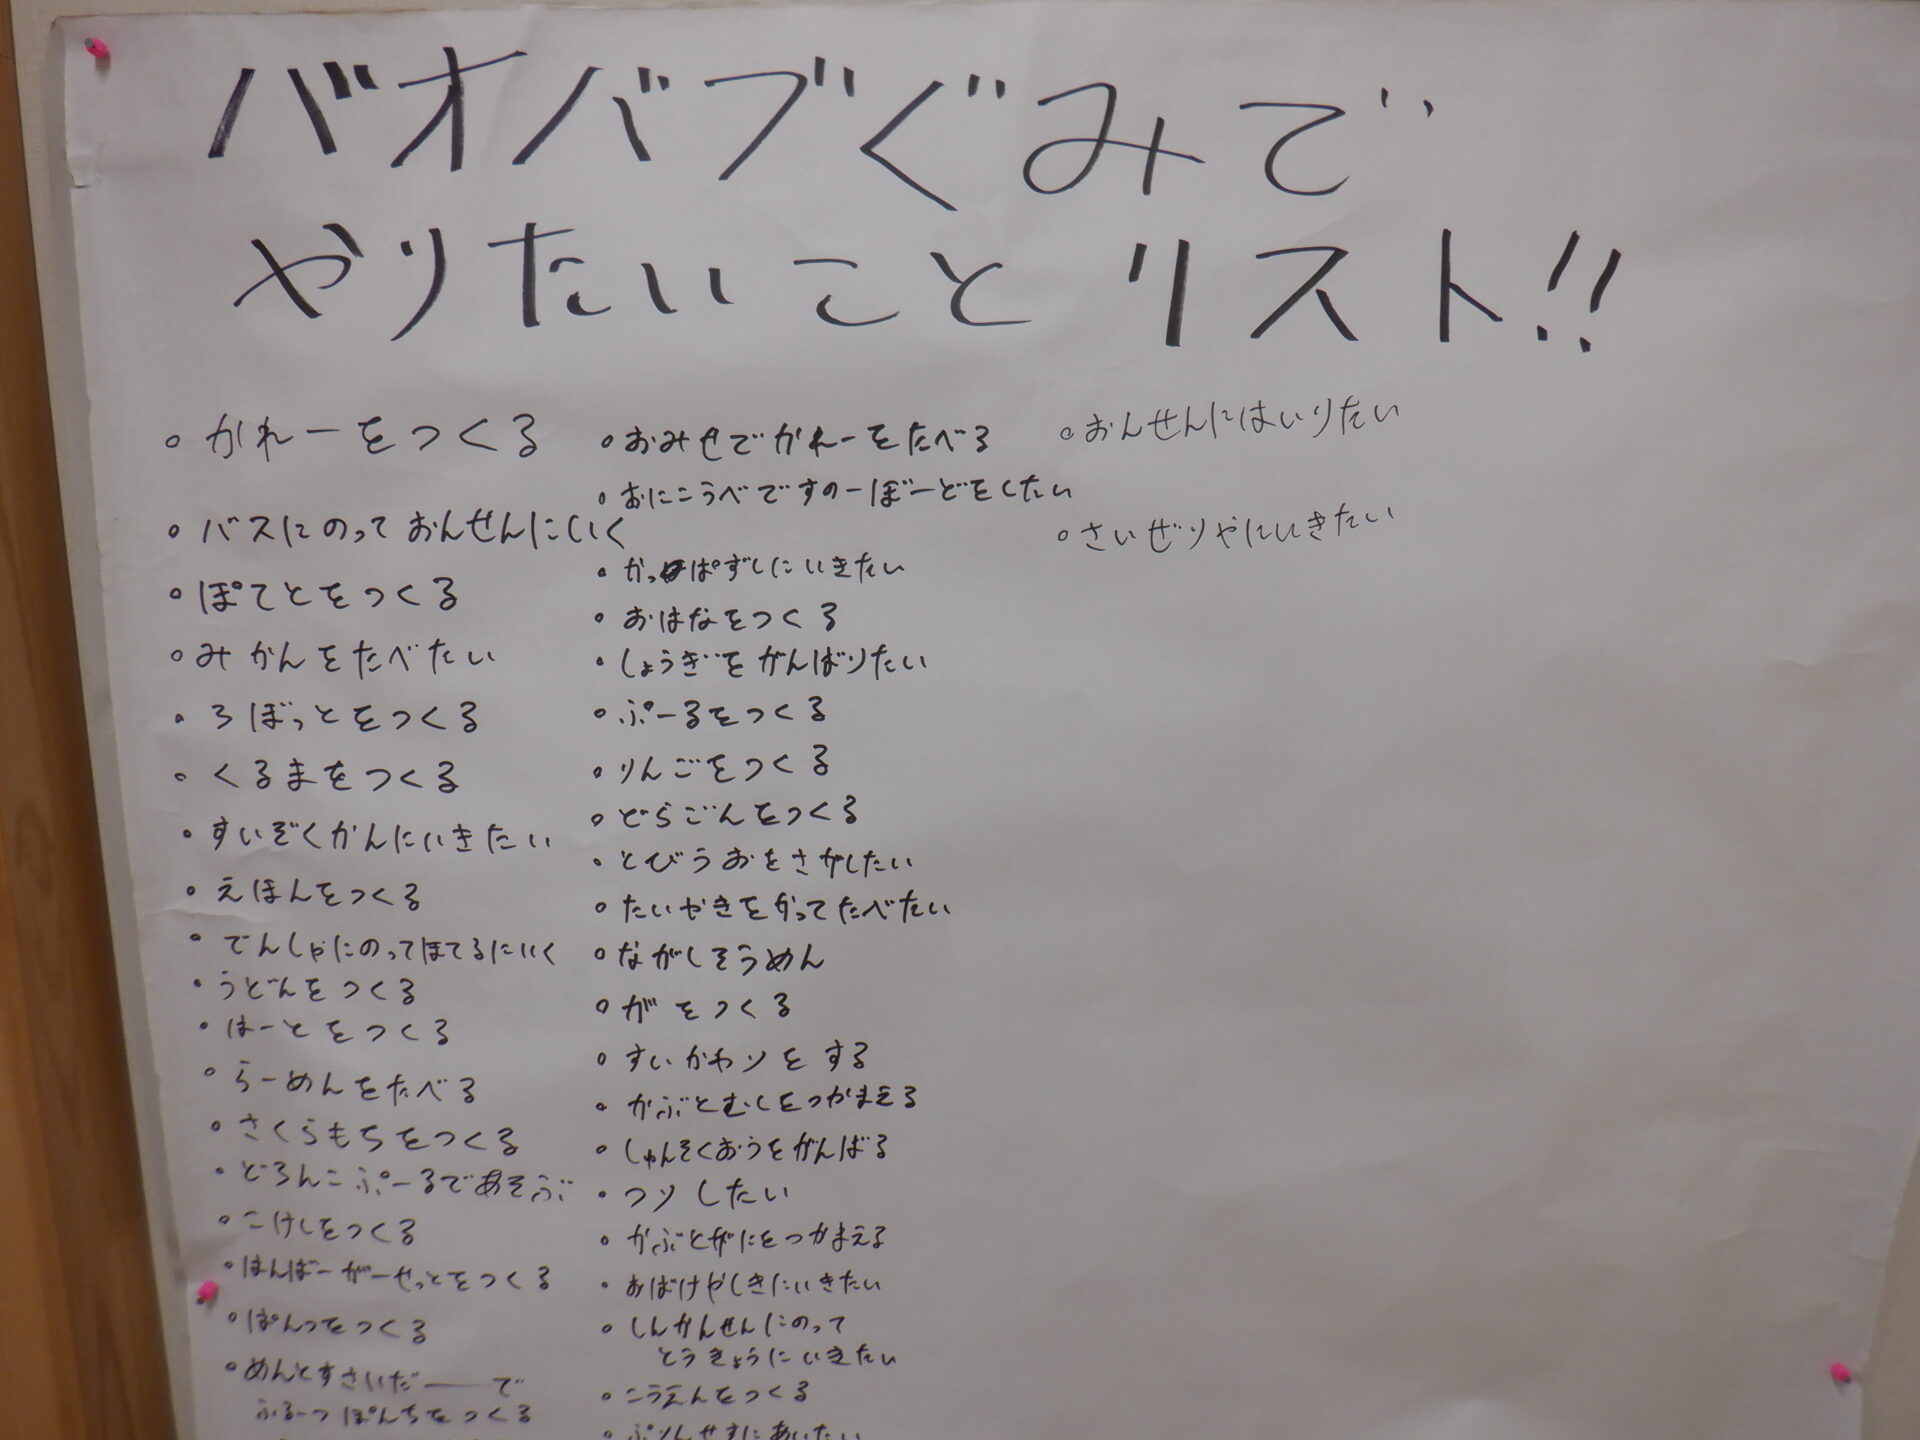 バオバブぐみで
やりたいこと リスト!!
。かれーをつくる
。バスにのって おんせんにいく
。ぽてとをつくる
。みかんをたべたい
。ろぼっとをつくる
。くるまをつくる
。すいぞくかんにいきたい
。えほんをつくる
。でんしゃにのってほてるにいく
。うどんをつくる
。はーとをつくる
。らーめんをたべる
。さくらもちをつくる
。どろんこぷーるであそぶ
。こけしをつくる
。はんばーがーせっとをつくる
。ぱんつをつくる
。めんとすさいだーーで
ふるーつぽんちをつくる
。おみせでかれーをたべる
。おにこうべですのーぼーどをしたい
。かっぱずしにいきたい
。おはなをつくる
。しょうぎをがんばりたい
。ぷーるをつくる
。りんごをつくる
。どらごんをつくる
。とびうおをさがしたい
。たいやきをかってたべたい
。ながしそうめん
。がをつくる
。すいかわりをする
。かぶとむしをつかまえる
。しゅんそくおうをがんばる
。つりしたい
。かぶとがにをつかまえる
。おばけやしきにいきたい
。しんかんせんにのって
とうきょうにいきたい
。こうえんをつくる
。ぷりんせすにあいたい
。おんせんにはいりたい
。さいぜりやにいきたい